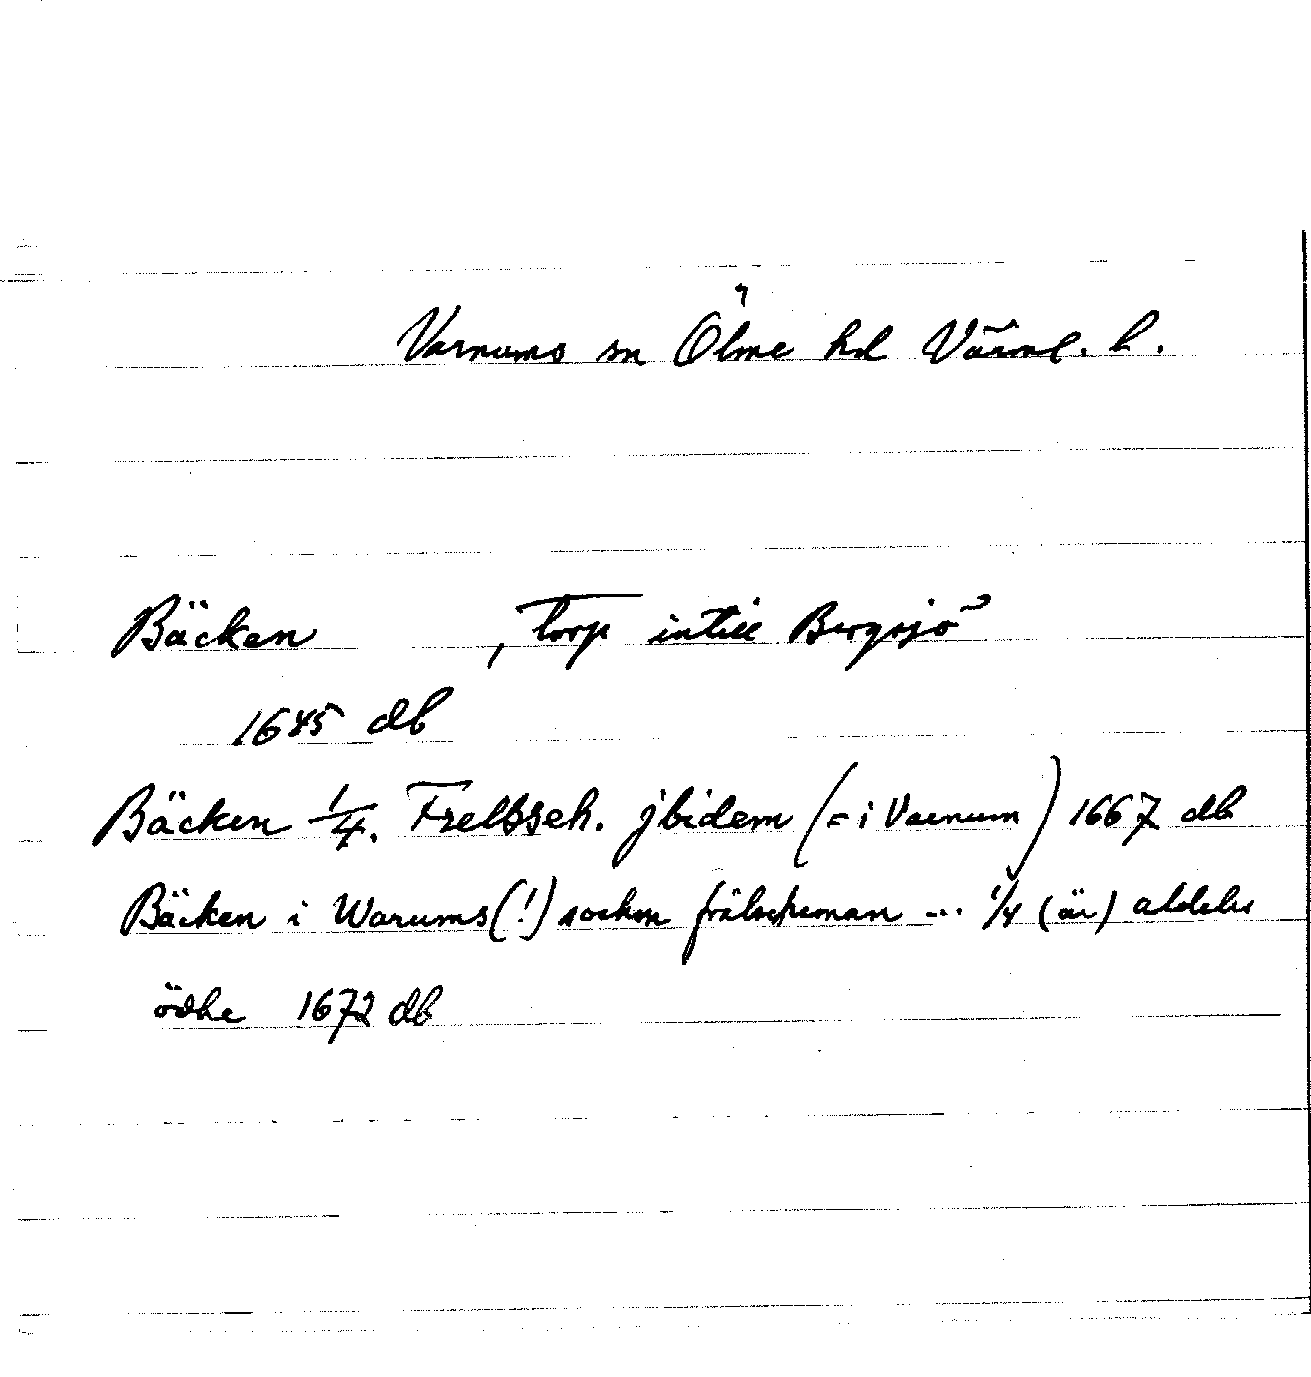 Varnums sn Ölme hd Värml. l.
Bäcken , Torp intill Bergsjö
1645 db
Bäcken 1/4. Frelsseh. jbidem (= i Varnum) 1667 db
Bäcken i Warums(!) socken frälseheman ... 1/4 (är) aldeles
ödhe 1672 db